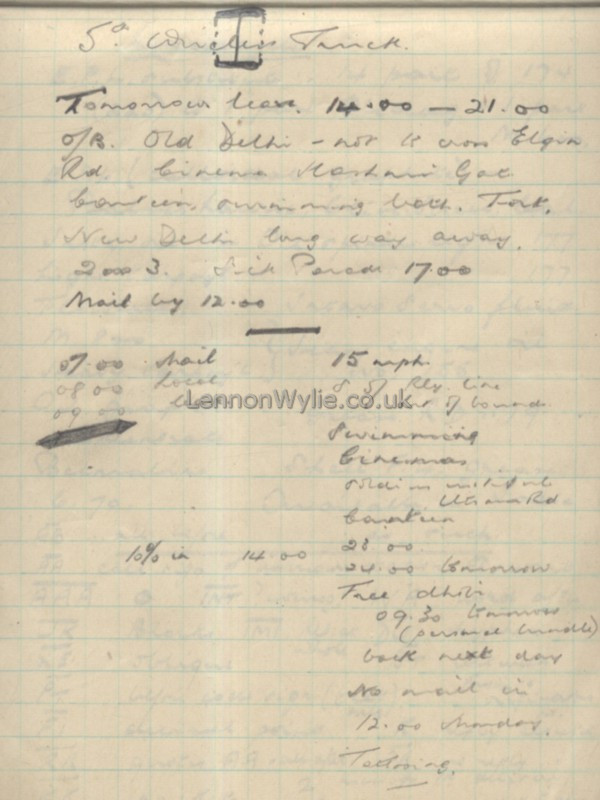 5° Wireless Truck.
I
Tomorrow leave. 14.00 — 21.00
o/B. Old Delhi - not to cross Elgin
Rd. Cinema Kashmir Gat
Canteen, swimming bath. Fort.
New Delhi long way away.
2 3. Sick Parade 17.00
Mail by 12.00
07.00 Mail
08 00 Local
09 00
15 mph.
S of Rly. line
out of bounds
LennonWylie.co.uk
Swimming
Cinemas
Rd
Canteen
10% in 14.00
23 00.
24.00 tomorrow
Free dhobi
09.30 tomorrow
(personal bundle)
back next day
No mail in
12.00 Monday.